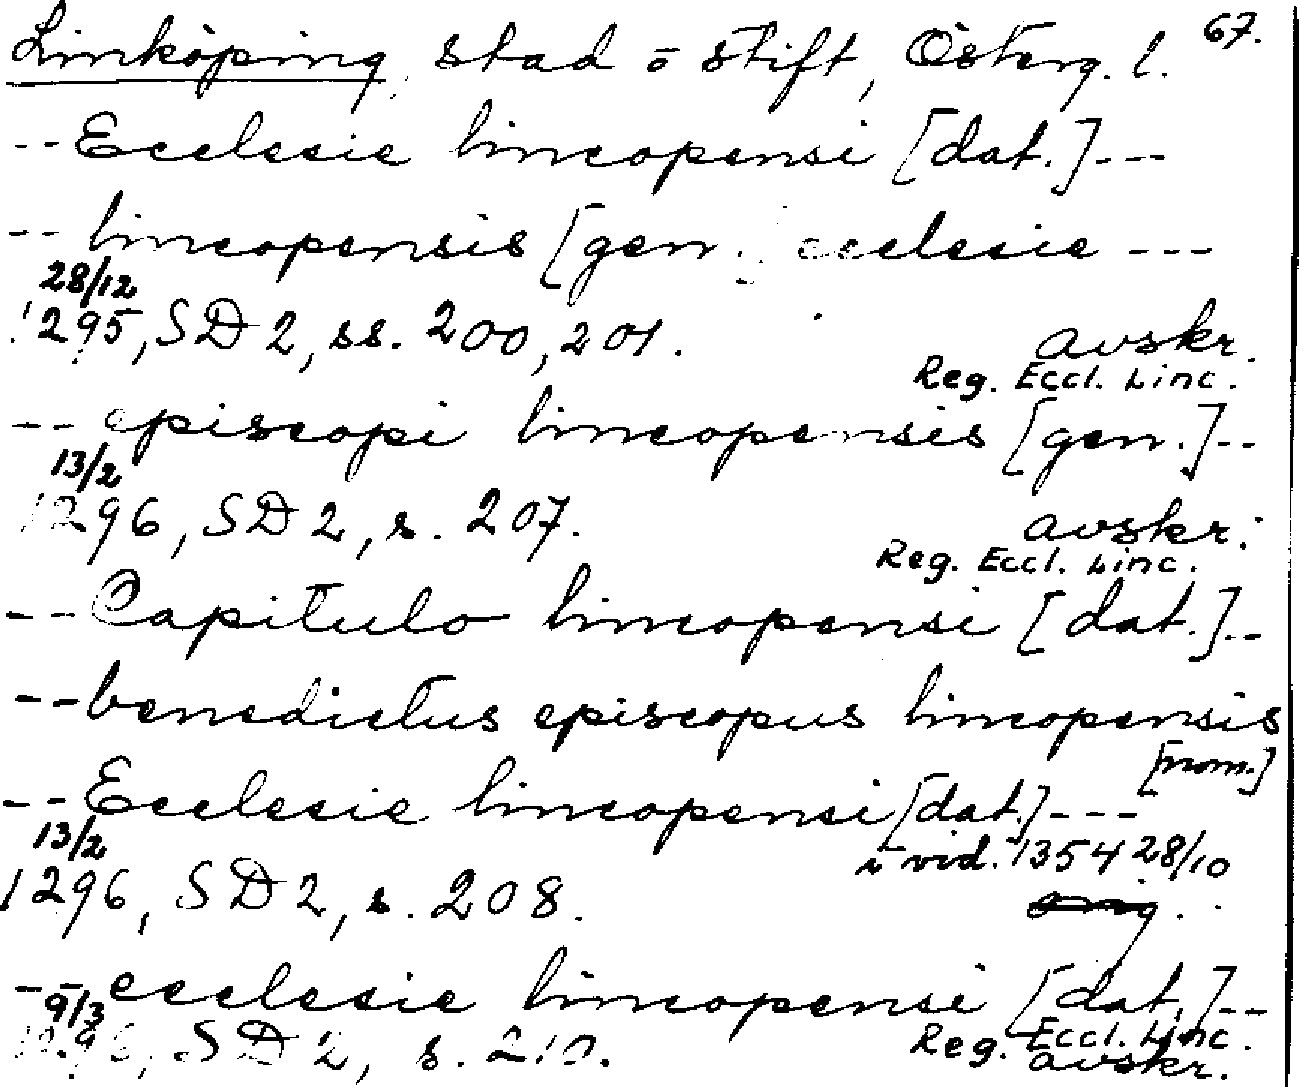 Linköping, stad o stift, Österg. l. 67.
-- Ecclesie lincopensi [dat.] ---
-- lincopensis [gen.] ecclesie ---
28/12
1295, SD 2, ss. 200, 201. avskr.
Reg. Eccl. Linc.
-- episcopi lincopensis [gen.] --
13/2
1296, SD 2, s. 207. avskr.
Reg. Eccl. Linc.
-- Capitulo lincopensi [dat.] --
-- benedictus episcopus lincopensis
[nom.]
-- Ecclesie lincopensi [dat.] ---
13/2 i vid. 1354 28/10
1296, SD 2, s. 208. orig.
-- ecclesie lincopensi [dat.] --
9/3 Reg. Eccl. Linc.
1296, SD 2, s. 210. avskr.